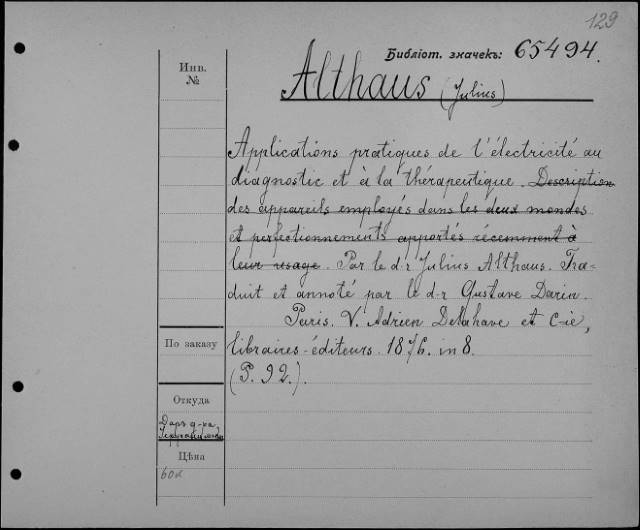 129
Библіот. значекъ: 65494.
Инв.
№
Althaus (Julius)
Applications pratiques de l'électricité au
diagnostic et à la thérapeutique. Description
des appareils employés dans les deux mondes
et perfectionnements apportés récemment à
leur usage. Par le d-r Julius Althaus. Tra-
duit et annoté par le d-r Gustave Darin.
Paris. V. Adrien Delahave et C-ie,
libraires-éditeurs. 1876. in 8.
(P. 92.).
По заказу
Откуда
Даръ д-ра
Цѣна
60к